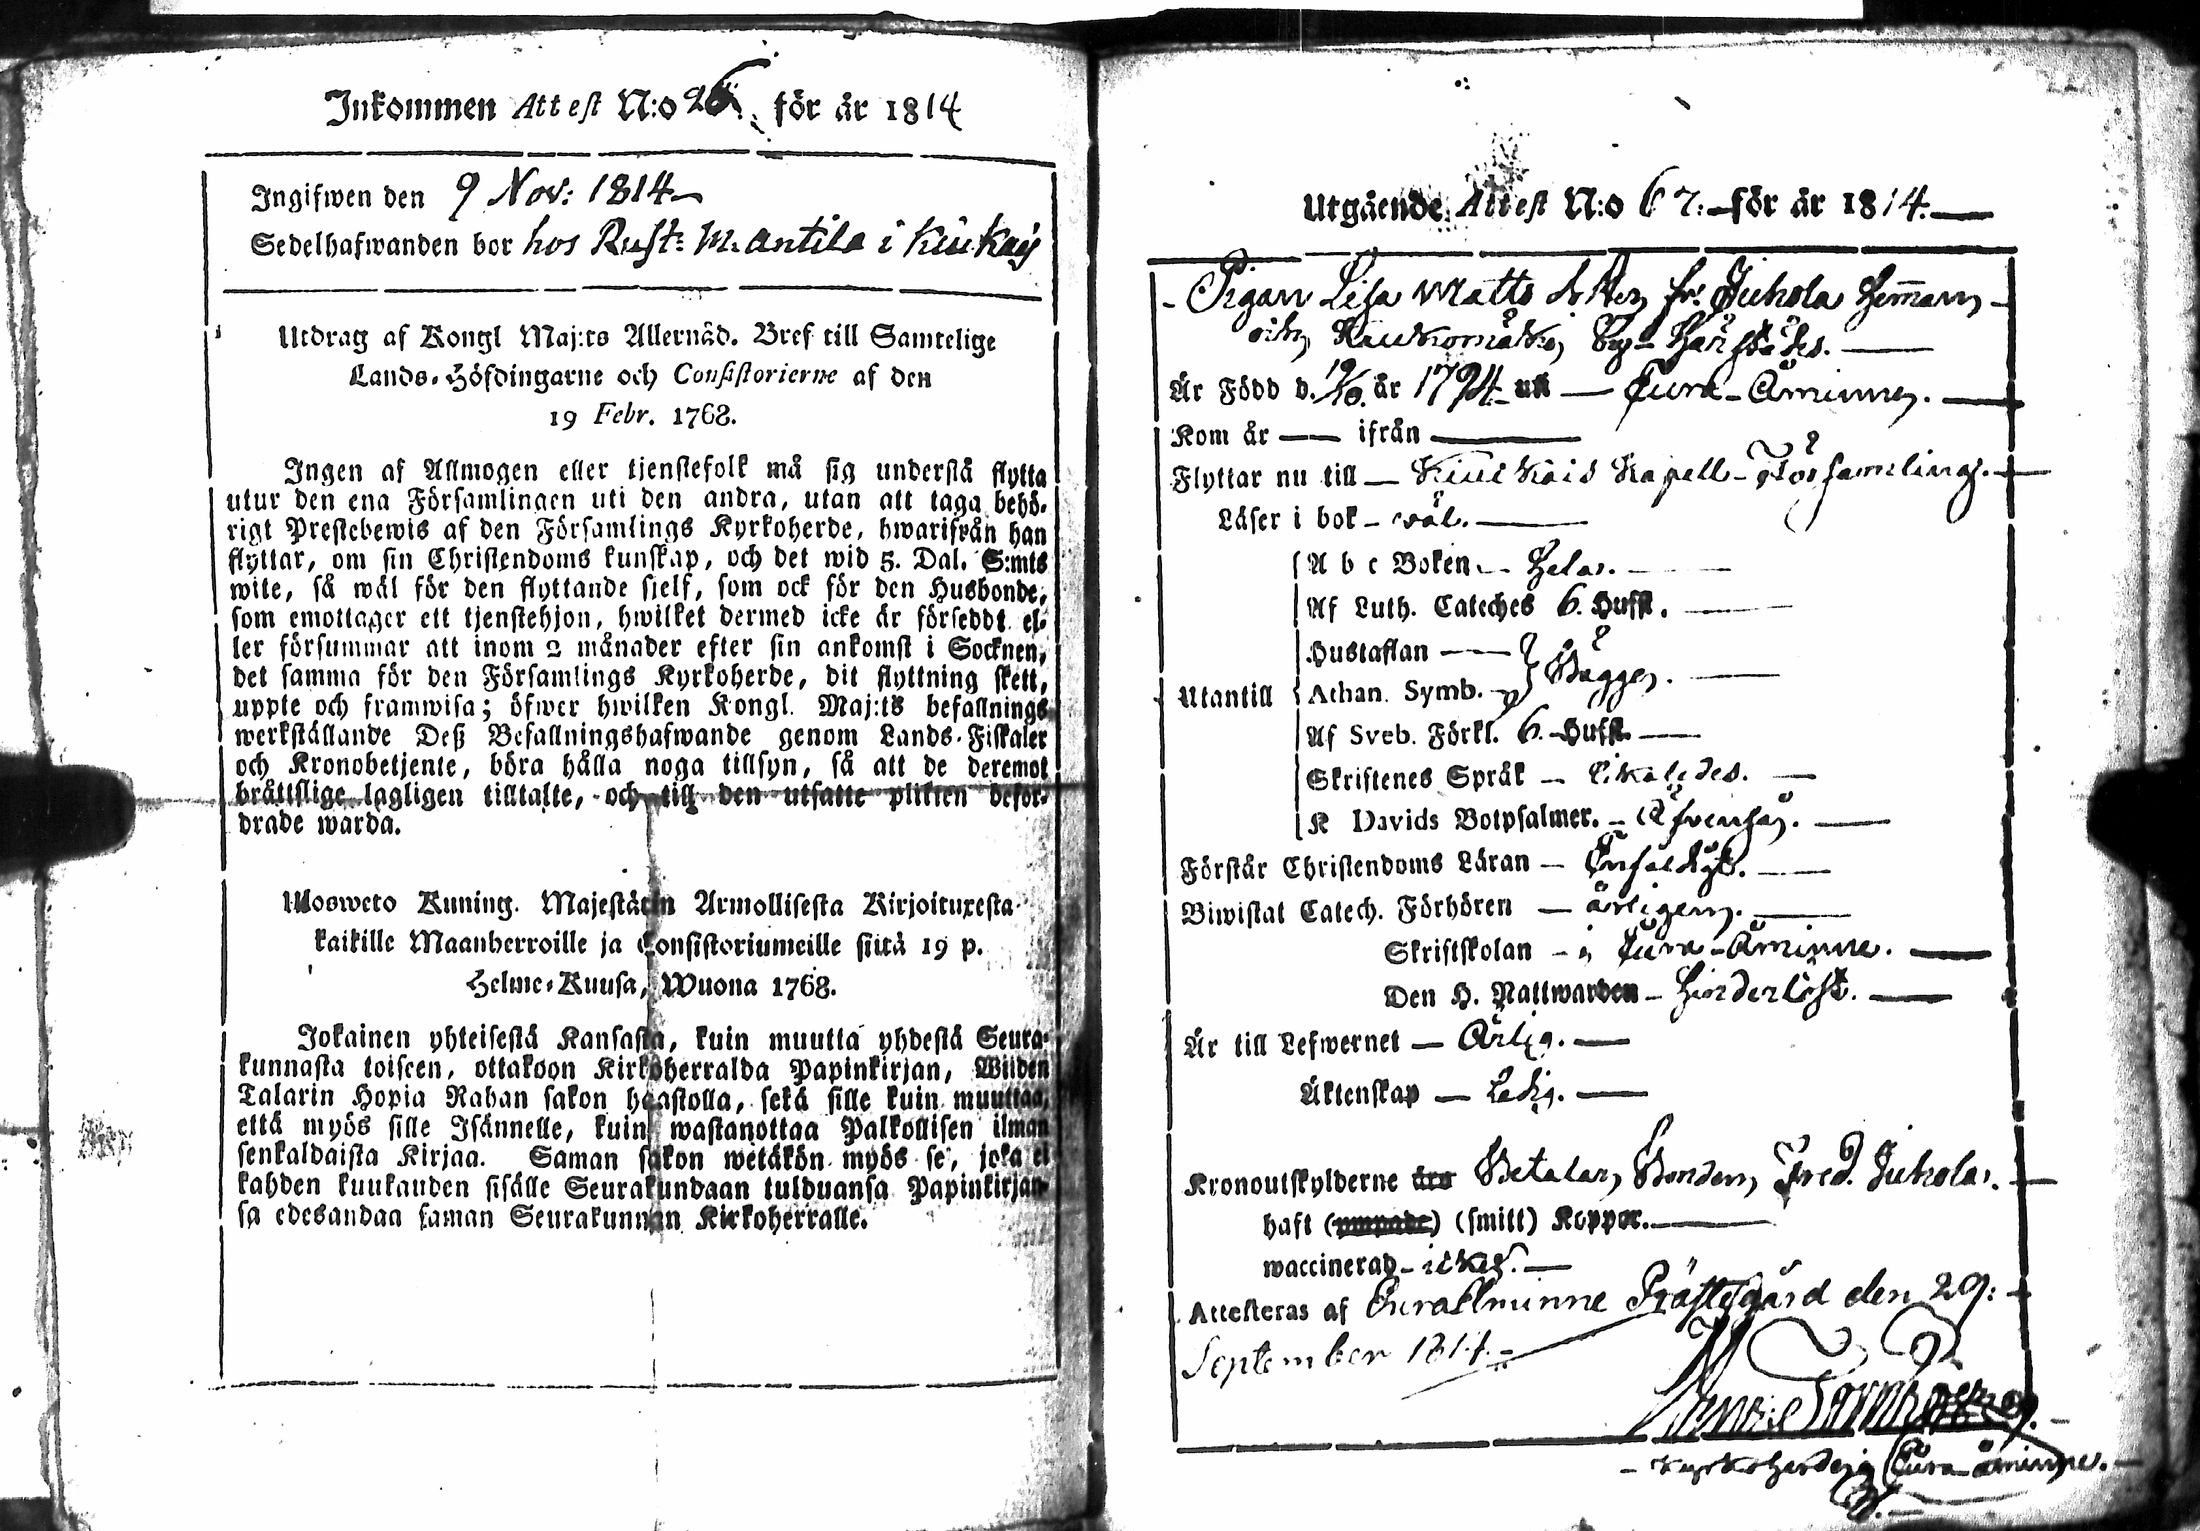 Inkommen Attest N:o 26. för år 1814
Ingifwen den 9 Nov: 1814
Sedelhafwanden bor hos Rust: M. Antila i Kiukais
Utdrag af Kongl Maj:ts Allernåd. Bref till Samtelige
Lands-Höfdingarne och Consistorierne af den
19 Febr. 1768.
Ingen af Allmogen eller tjenstefolk må sig understå flytta
utur den ena Församlingen uti den andra, utan att taga behö-
rigt Prestebewis af den Församlings Kyrkoherde, hwarifrån han
flyttar, om sin Christendoms kunskap, och det wid 5. Dal. S:mts
wite, så wäl för den flyttande sjelf, som ock för den Husbonde,
som emottager ett tjenstehjon, hwilket dermed icke är förseddt el-
ler försummar att inom 2 månader efter sin ankomst i Socknen,
det samma för den Församlings Kyrkoherde, dit flyttning skett,
uppte och framwisa; öfwer hwilken Kongl. Maj:ts befallnings
werkställande Deß Befallningshafwande genom Lands-Fiskaler
och Kronobetjente, böra hålla noga tillsyn, så att de deremot
bråttslige lagligen tilltalte, och till den utsatte plikten befor-
drade warda.
Ulosweto Kuning. Majestätin Armollisesta Kirjoituxesta
kaikille Maanherroille ja Consistoriumeille siitä 19 p.
Helme-Kuusa, Wuona 1768.
Jokainen yhteisestä Kansasta, kuin muutta yhdestä Seura-
kunnasta toiseen, ottakoon Kirkoherralda Papinkirjan, Wiiden
Talarin Hopia Rahan sakon haastolla, sekä sille kuin muuttaa,
että myös sille Isännelle, kuin wastanottaa Palkollisen ilman
senkaldaista Kirjaa. Saman sakon wetäkön myös se, joka ei
kahden kuukauden sisälle Seurakundaan tulduansa Papinkirjan-
sa edesandaa saman Seurakunnan Kirkoherralle.
Utgående Attest N:o 67. för år 1814.
Pigan Lisa Matts dotter fr. Jukola Hemman
och Kaukomäki By Härstädes.
Är Född d. 19/10. år 1794 uti Eura-Åminne.
Kom år ifrån
Flyttar nu till Kiukais Kapell-Församling.
Läser i bok wäl.
A b c Boken Hela.
Af Luth. Cateches 6. Hufst.
Hustaflan
Utantill Athan. Symb. Bägge.
Af Sveb. Förkl. 6. Hufst.
Skriftenes Språk likaledes.
K Davids Botpsalmer. Äfvenså.
Förstår Christendoms Läran Enfaldigt.
Biwistat Catech. Förhören årligen.
Skriftskolan i Eura-Åminne.
Den H. Nattwarden Hinderlöst.
Är till Lefwernet Ärlig.
Äktenskap Ledig.
Kronoutskylderne äro Betalar Bonden Fred. Jukola.
haft (ympade) (smitt) Koppor.
waccinerad icke.
Attesteras af Euraåminne Prästegård den 29:
September 1814.
Kyrkoherde i Eura-åminne.